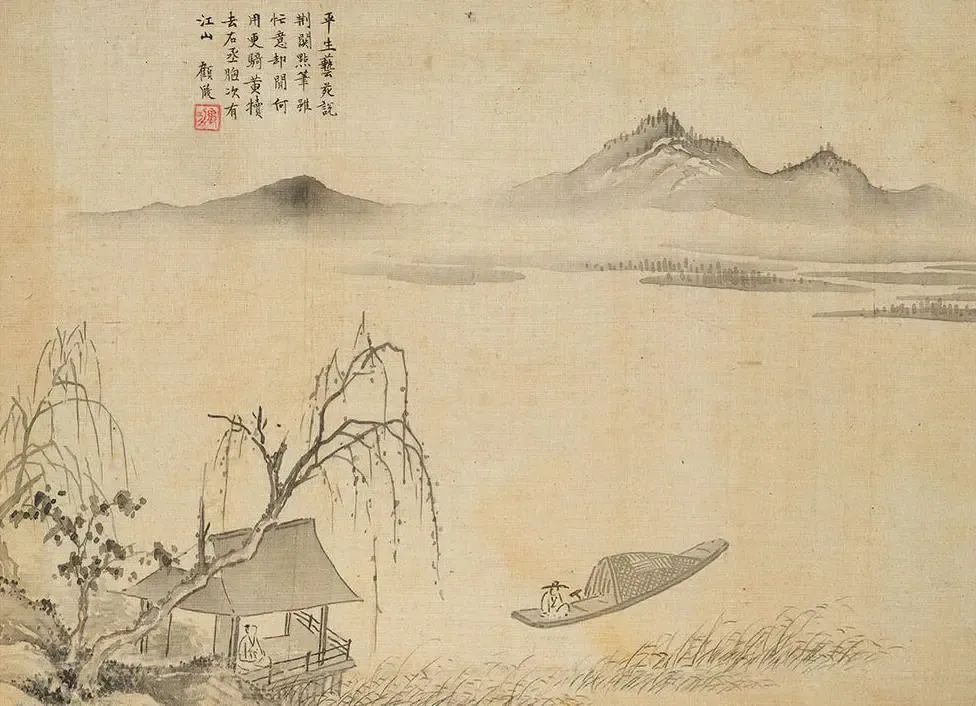 平生藝苑說
荆關點筆雖
忙意却閒何
用更騎黃犢
去右丞胸次有
江山 顧